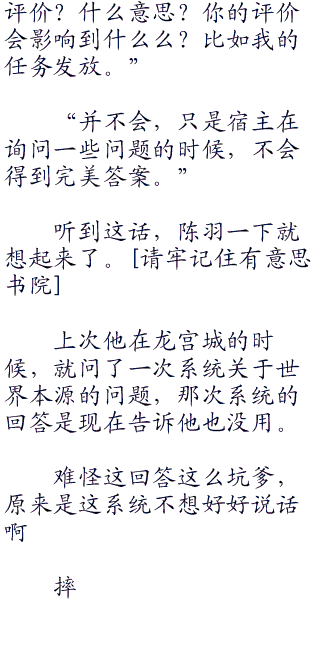 评价？什么意思？你的评价
会影响到什么么？比如我的
任务发放。”
“并不会，只是宿主在
询问一些问题的时候，不会
得到完美答案。”
听到这话，陈羽一下就
想起来了。[请牢记住有意思
书院]
上次他在龙宫城的时
候，就问了一次系统关于世
界本源的问题，那次系统的
回答是现在告诉他也没用。
难怪这回答这么坑爹，
原来是这系统不想好好说话
啊
摔